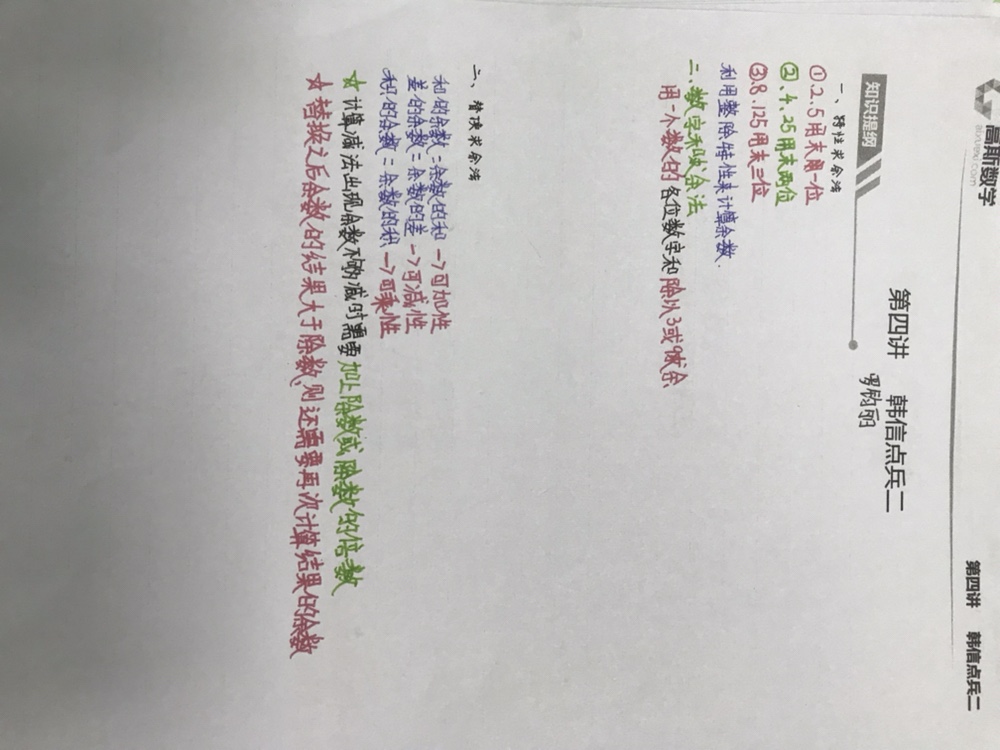 高斯数学
第四讲 韩信点兵二
第四讲 韩信点兵二
知识提纲
一、特性求余法
①2.5用末一位
②4.25用末两位
③8.125用末三位
利用整除特性来计算余数.
二、数字求和余法
用一个数的各位数字和除以3或9求余
二、替换求余法
和的余数=余数的和→可加性
差的余数=余数的差→可减性
积的余数=余数的积→可乘性
☆计算减法出现余数不够减时需要加上除数或除数的倍数
☆替换之后余数的结果大于除数,则还需要再次计算结果的余数